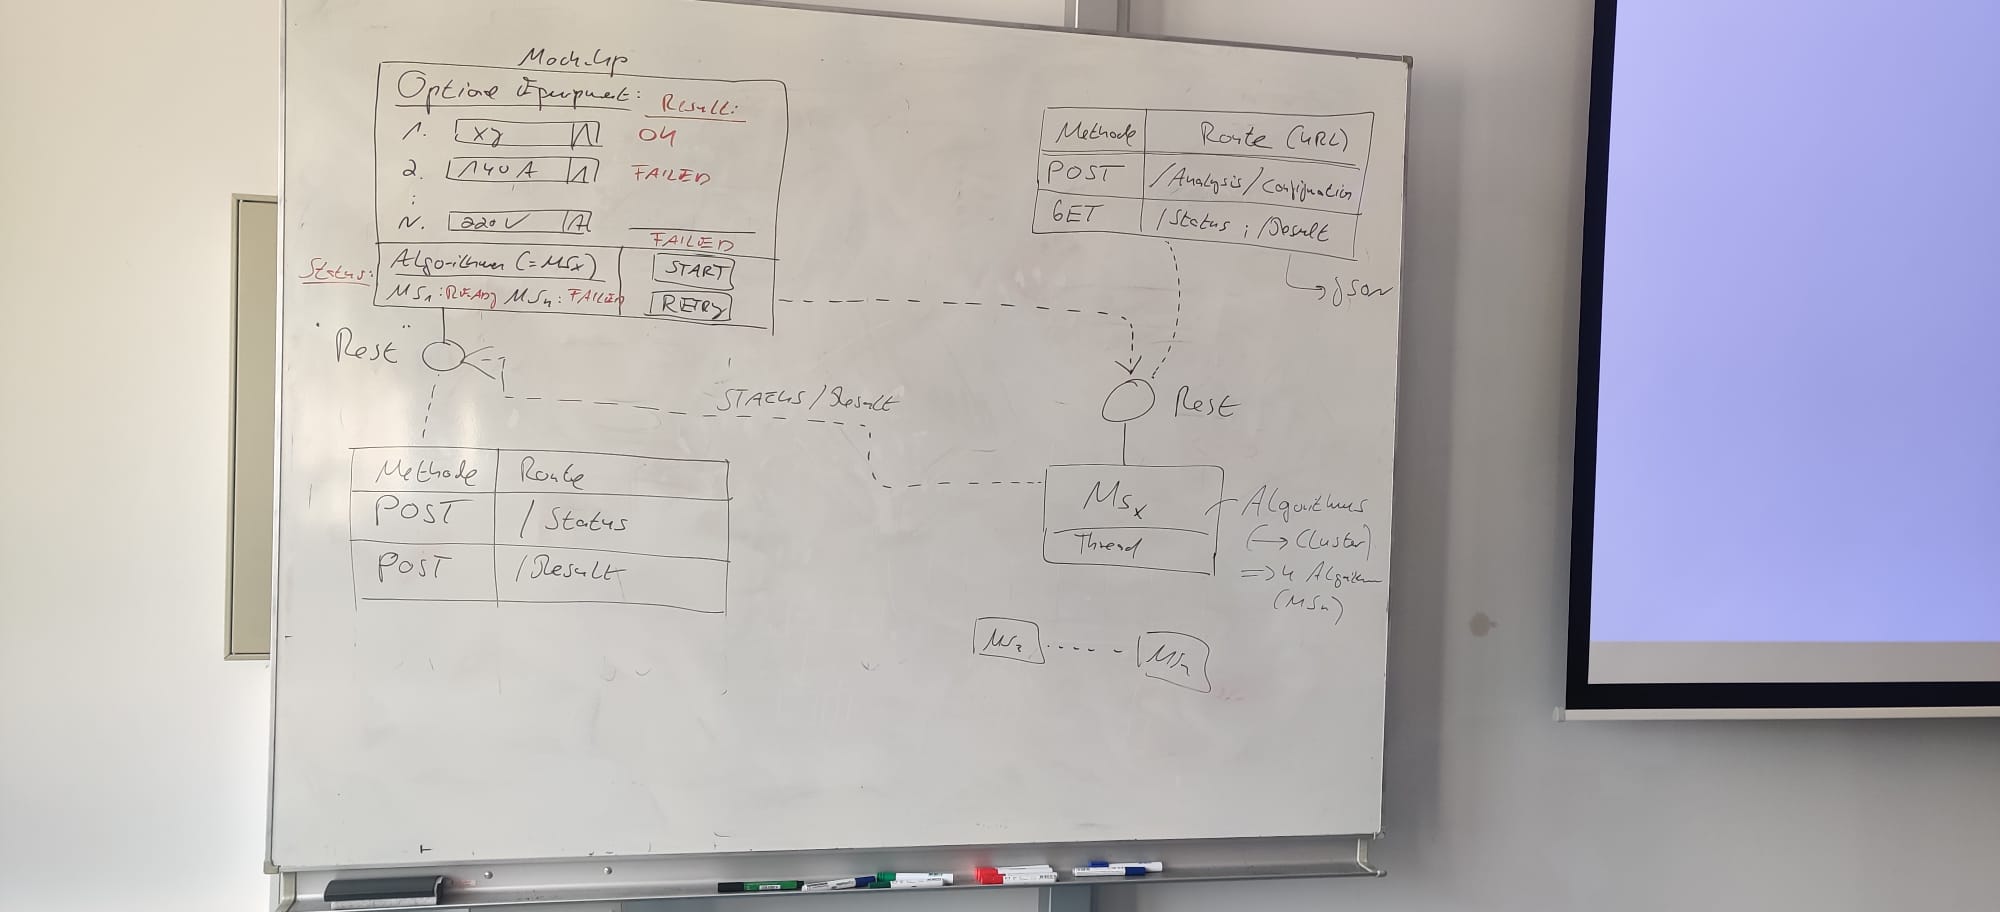 Mock-Up
Optional Equipment:
Result:
1. xy OK
2. 140 A FAILED
:
N. 220 V
FAILED
Algorithmen (=MSx)
START
Status:
MS1: READY MSn: FAILED
RETRY
"Rest"
STATUS/Result
Methode Route
POST /Status
POST /Result
Methode Route (URL)
POST /Analysis/Configuration
GET /Status ; /Result
→ json
Rest
MSx
Thread
Algorithmus
(→ Cluster)
=> 4 Algorithmen
(MSn)
MS2 ----- MSn